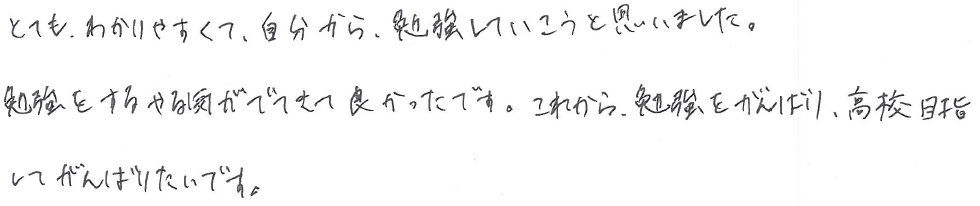 とても、わかりやすくて、自分から、勉強していこうと思いました。
勉強をするやる気がでてきて良かったです。これから、勉強をがんばり、高校目指
してがんばりたいです。